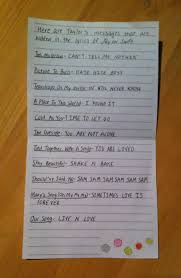 Here are Taylor's messages that are
hidden in the lyrics of Taylor Swift
Tim McGraw: CAN'T TELL ME NOTHIN'
Picture To Burn: DATE NICE BOYS
Teardrops On My Guitar: HE WILL NEVER KNOW
A Place In This World: I FOUND IT
Cold As You: TIME TO LET GO
The Outside: YOU ARE NOT ALONE
Tied Together With A Smile: YOU ARE LOVED
Stay Beautiful: SHAKE N BAKE
Should've Said No: SAM SAM SAM SAM SAM SAM
Mary's Song (Oh My My My): SOMETIMES LOVE IS
FOREVER
Our Song: LIVE N LOVE